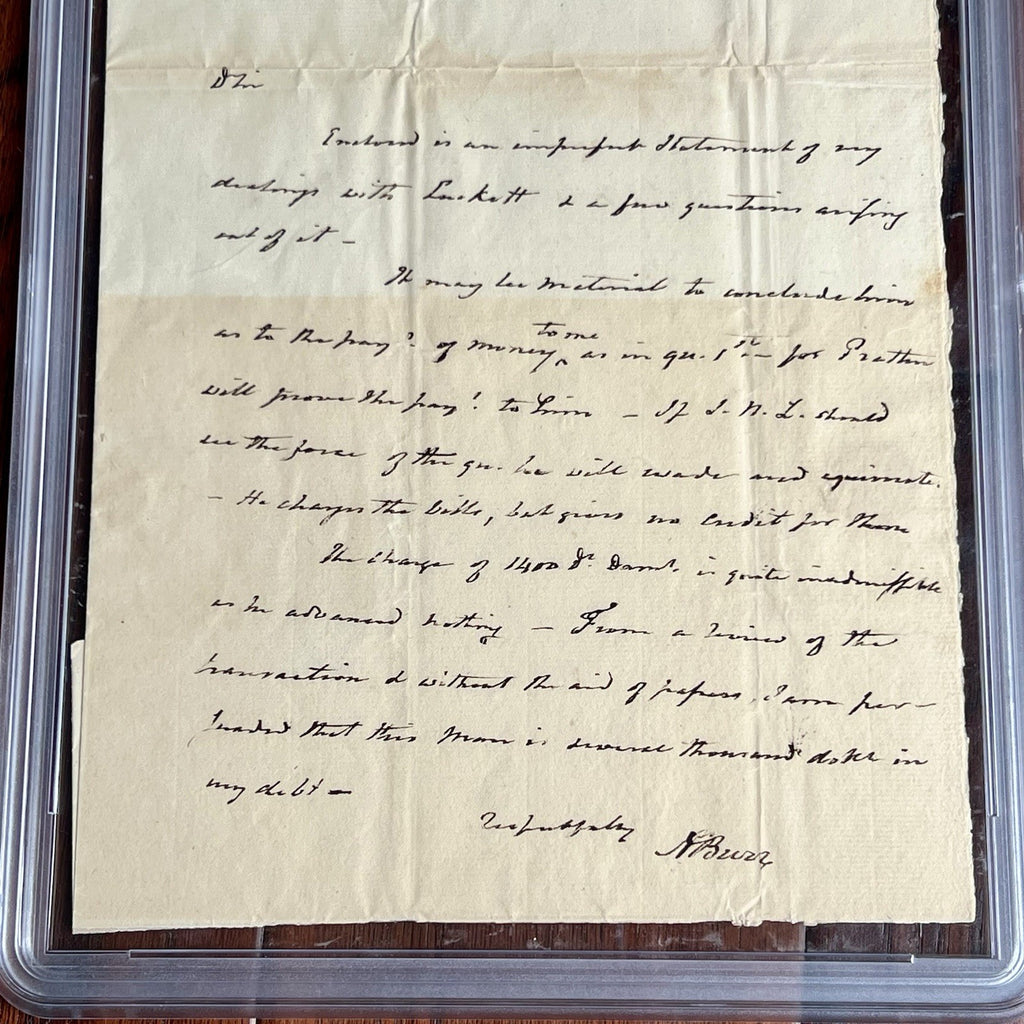 D Sir
Enclosed is an imperfect Statement of my
dealings with Luckett & a few questions arising
out of it –
It may be material to conclude him
as to the paym.t of money ^to me as in qu. 1st – for Pratten
will prove the paym.t to him – If J. N. L. should
see the force of the qu. he will evade and equivocate.
– He charges the bills, but gives no credit for them
The charge of 1400 Ds. Dam.s is quite inadmissible
as he advanced nothing – From a review of the
transaction & without the aid of papers, I am per-
suaded that this Man is several thousand dolls in
my debt –
respectfully
A Burr